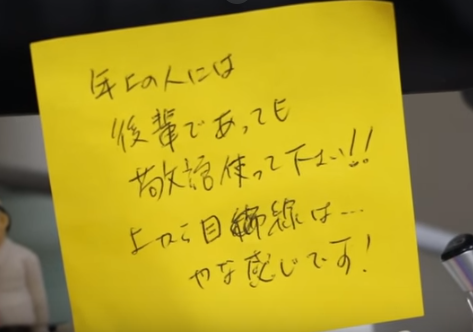 年上の人には
後輩であっても
敬語使って下さい!!
上から目線は…
やな感じです!